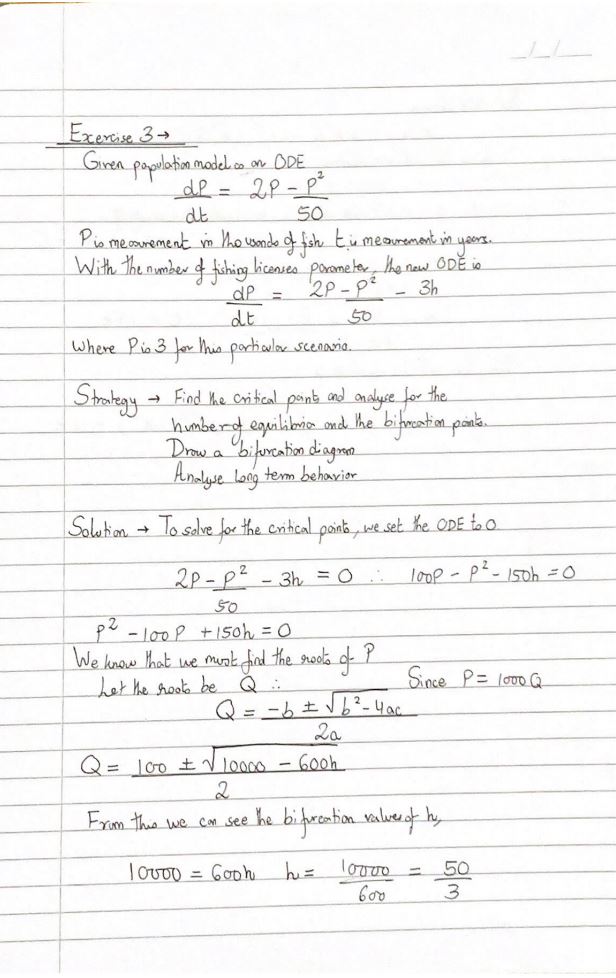 _/_/__
Exercise 3 →
Given population model as an ODE
dP/dt = 2P - P²/50
P is measurement in thousands of fish t is measurement in years.
With the number of fishing licenses parameter, the new ODE is
dP/dt = 2P - P²/50 - 3h
Where P is 3 for this particular scenario.
Strategy → Find the critical points and analyse for the
number of equilibria and the bifurcation points.
Draw a bifurcation diagram
Analyse long term behavior
Solution → To solve for the critical points, we set the ODE to 0
2P - P²/50 - 3h = 0 ∴ 100P - P² - 150h = 0
P² - 100P + 150h = 0
We know that we must find the roots of P
Let the roots be Q ∴ Since P = 1000Q
Q = -b ± √b² - 4ac / 2a
Q = 100 ± √10000 - 600h / 2
From this we can see the bifurcation values of h,
10000 = 600h h = 10000/600 = 50/3